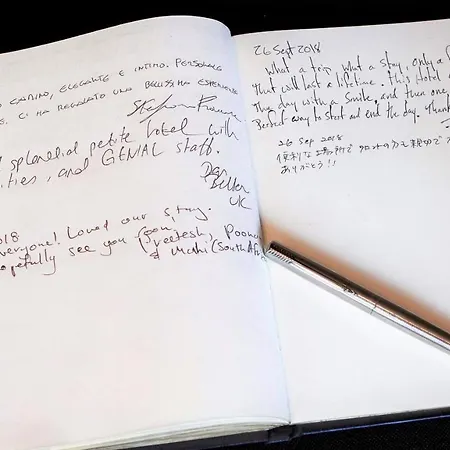 CARINO, ELEGANTE E INTIMO. PERSONALE
CI HA REGALATO UNA BELLISSIMA ESPERIENZA
splendid petite hotel with
ities, and GENIAL staff.
Dan
UK
2018
everyone! Loved our stay.
hopefully see you soon.
Preetesh, Poona
& Mahi (South Afr
26 Sept 2018
What a trip, what a stay, only a f
That will last a lifetime. This Hotel
The day with a smile, and then one
Perfect way to start and end the day. Thank
26 Sep 2018
便利な場所で フロントの方も親切で
ありがとう!!